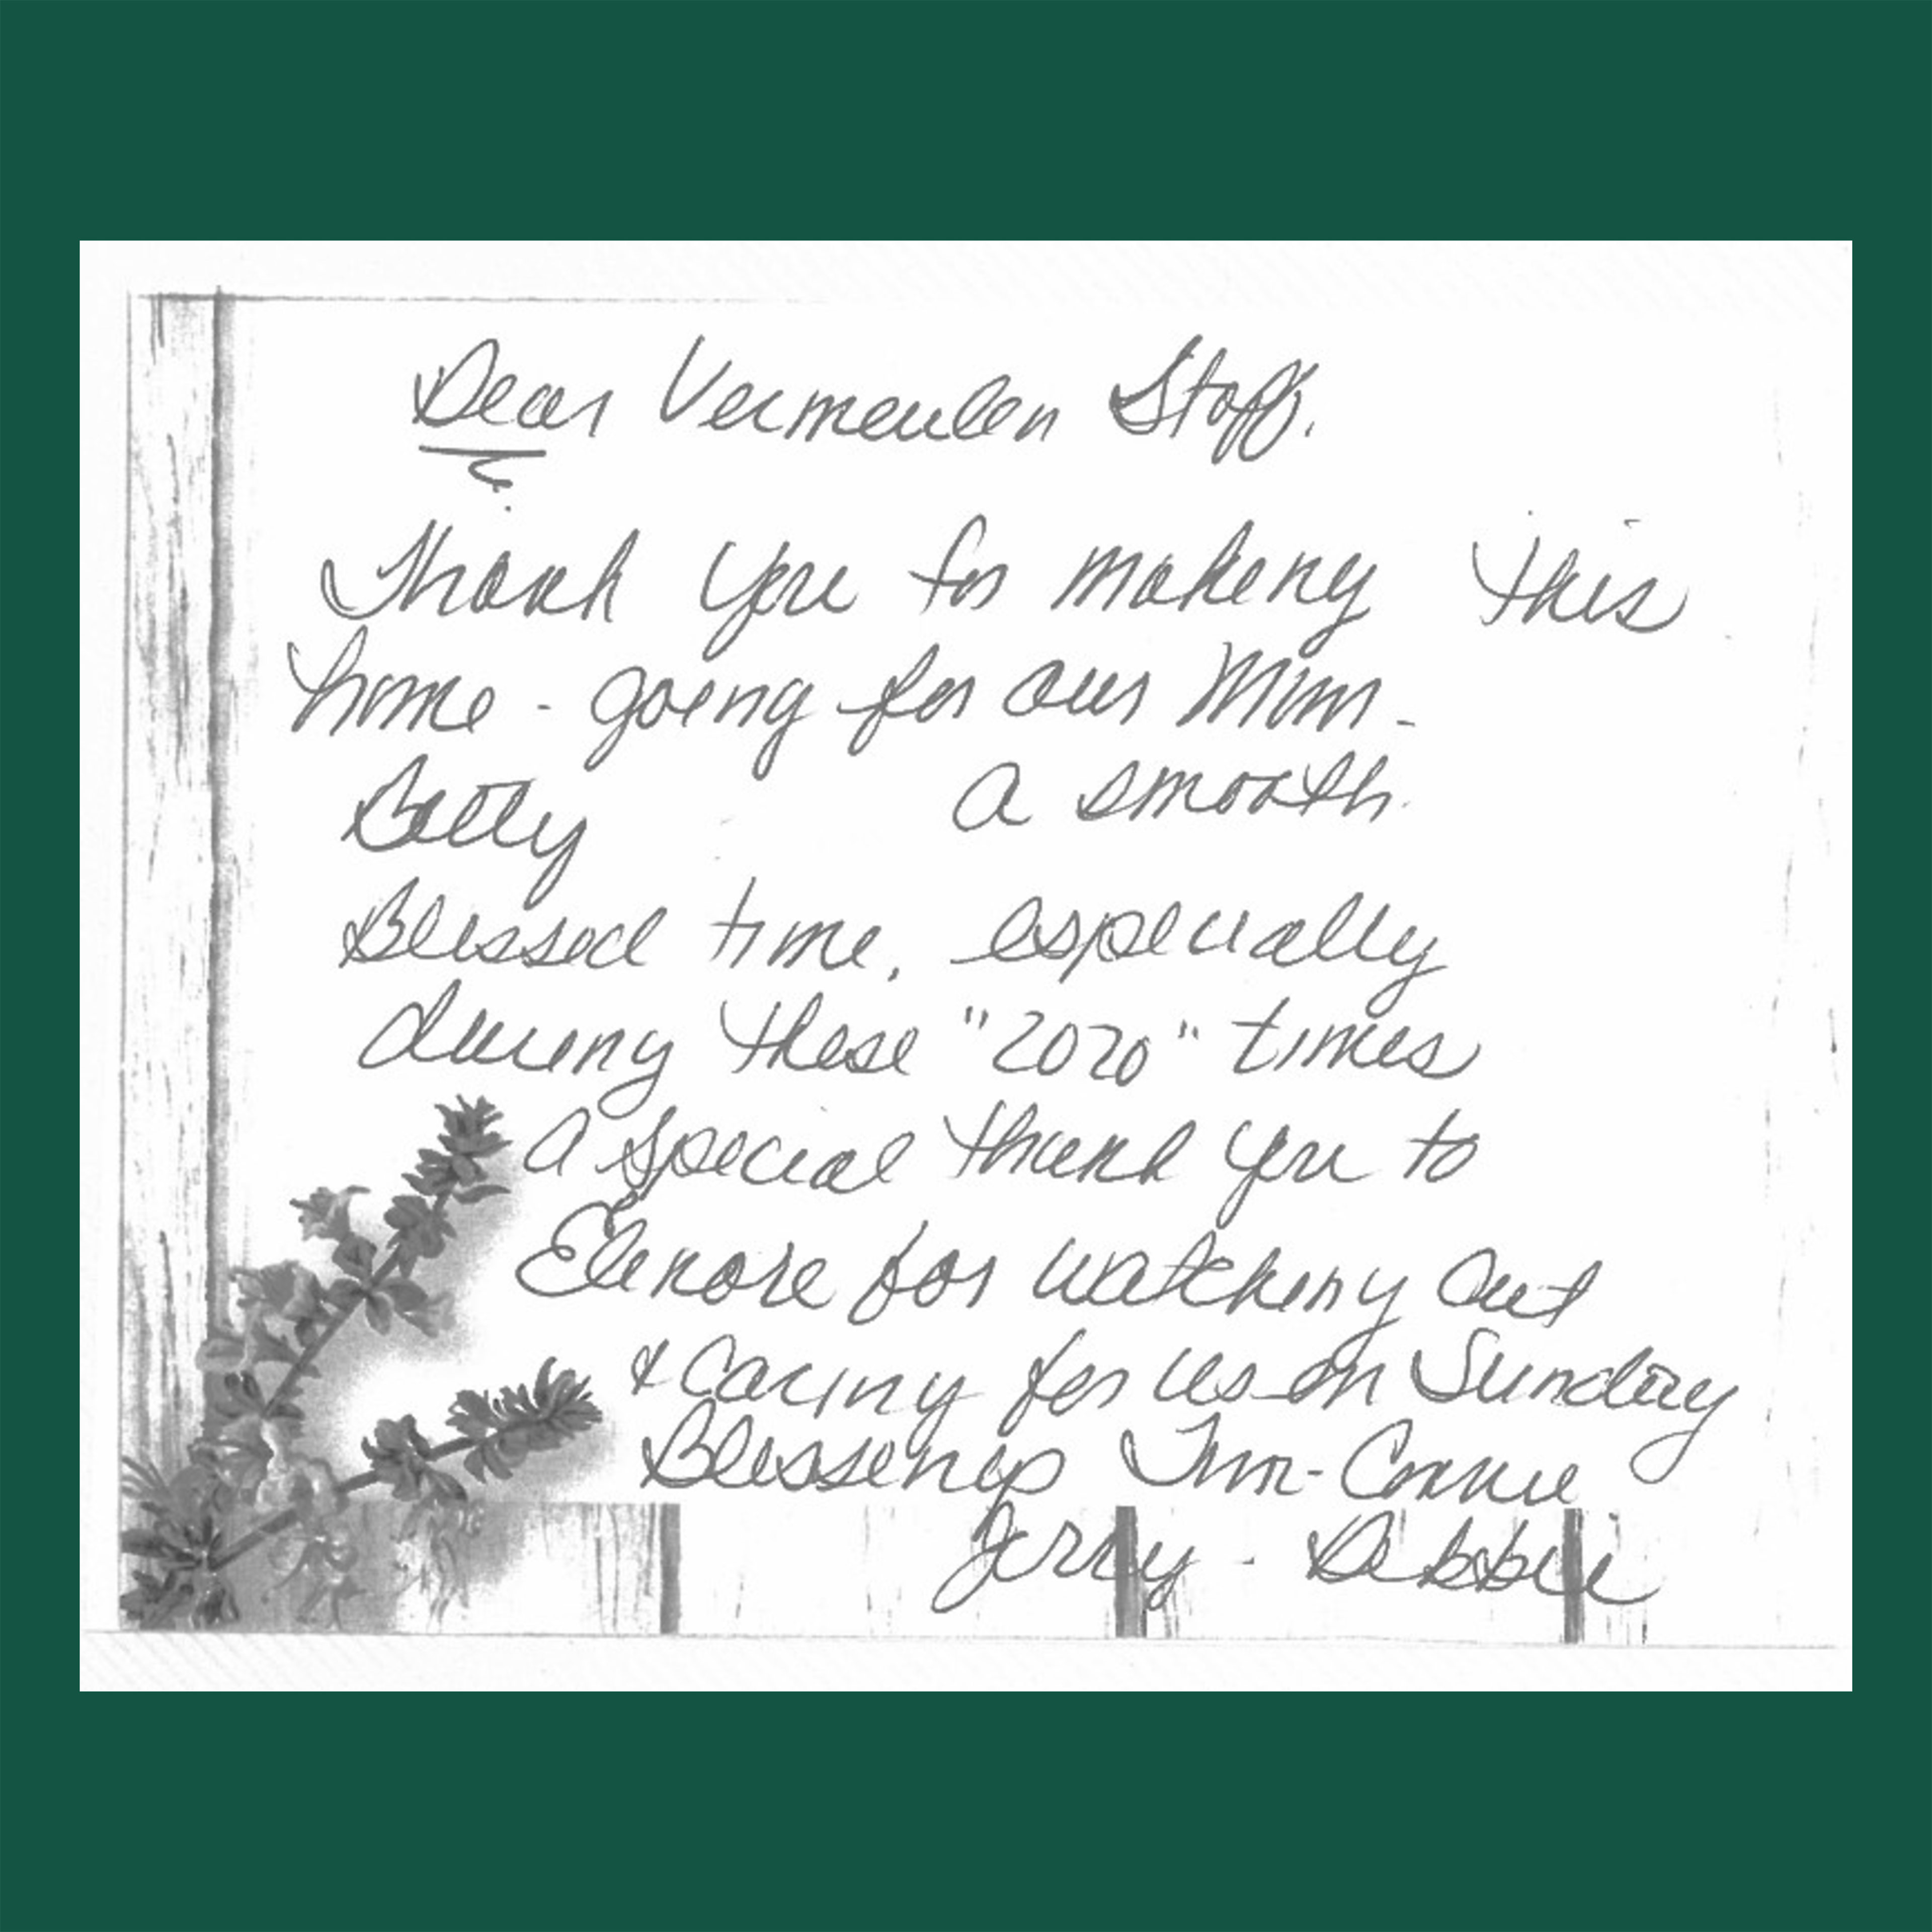 Dear Vermeulen Staff,
Thank you for making this
home-going for our Mom-
Betty A smooth
Blessed time, especially
during these "2020" times
A special thank you to
Elenore for watching out
& caring for us on Sunday
Blessings Tom-Connie
Jerry - Debbie